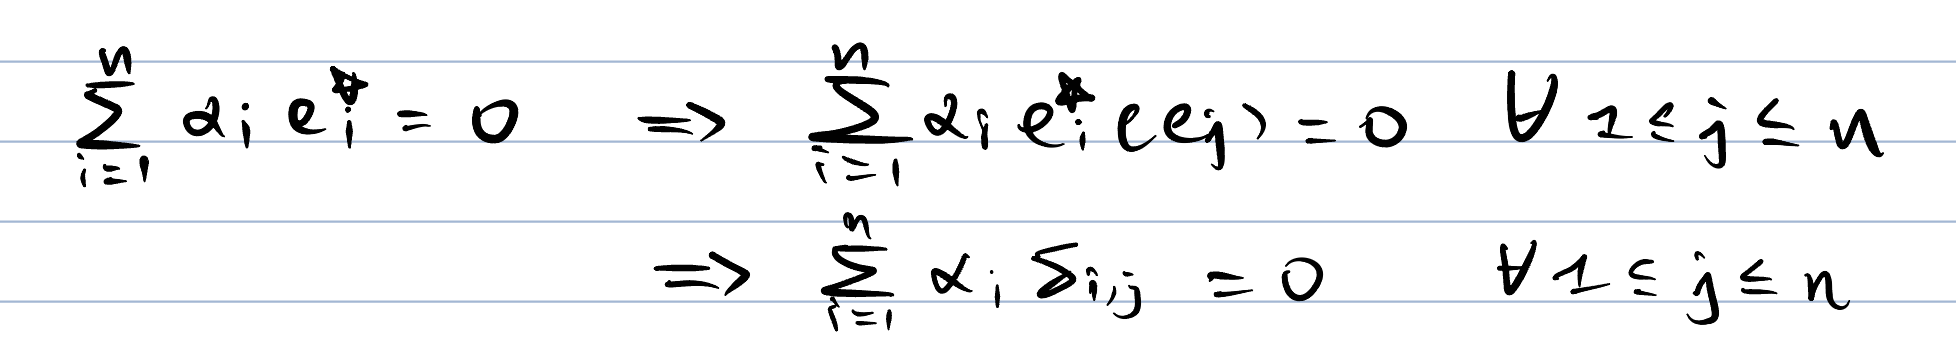 $\sum_{i=1}^{n} \alpha_i e_i^* = 0 \quad \Rightarrow \quad \sum_{i=1}^{n} \alpha_i e_i^*(e_j) = 0 \quad \forall 1 \leq j \leq n$
$\Rightarrow \quad \sum_{i=1}^{n} \alpha_i \delta_{i,j} = 0 \quad \forall 1 \leq j \leq n$